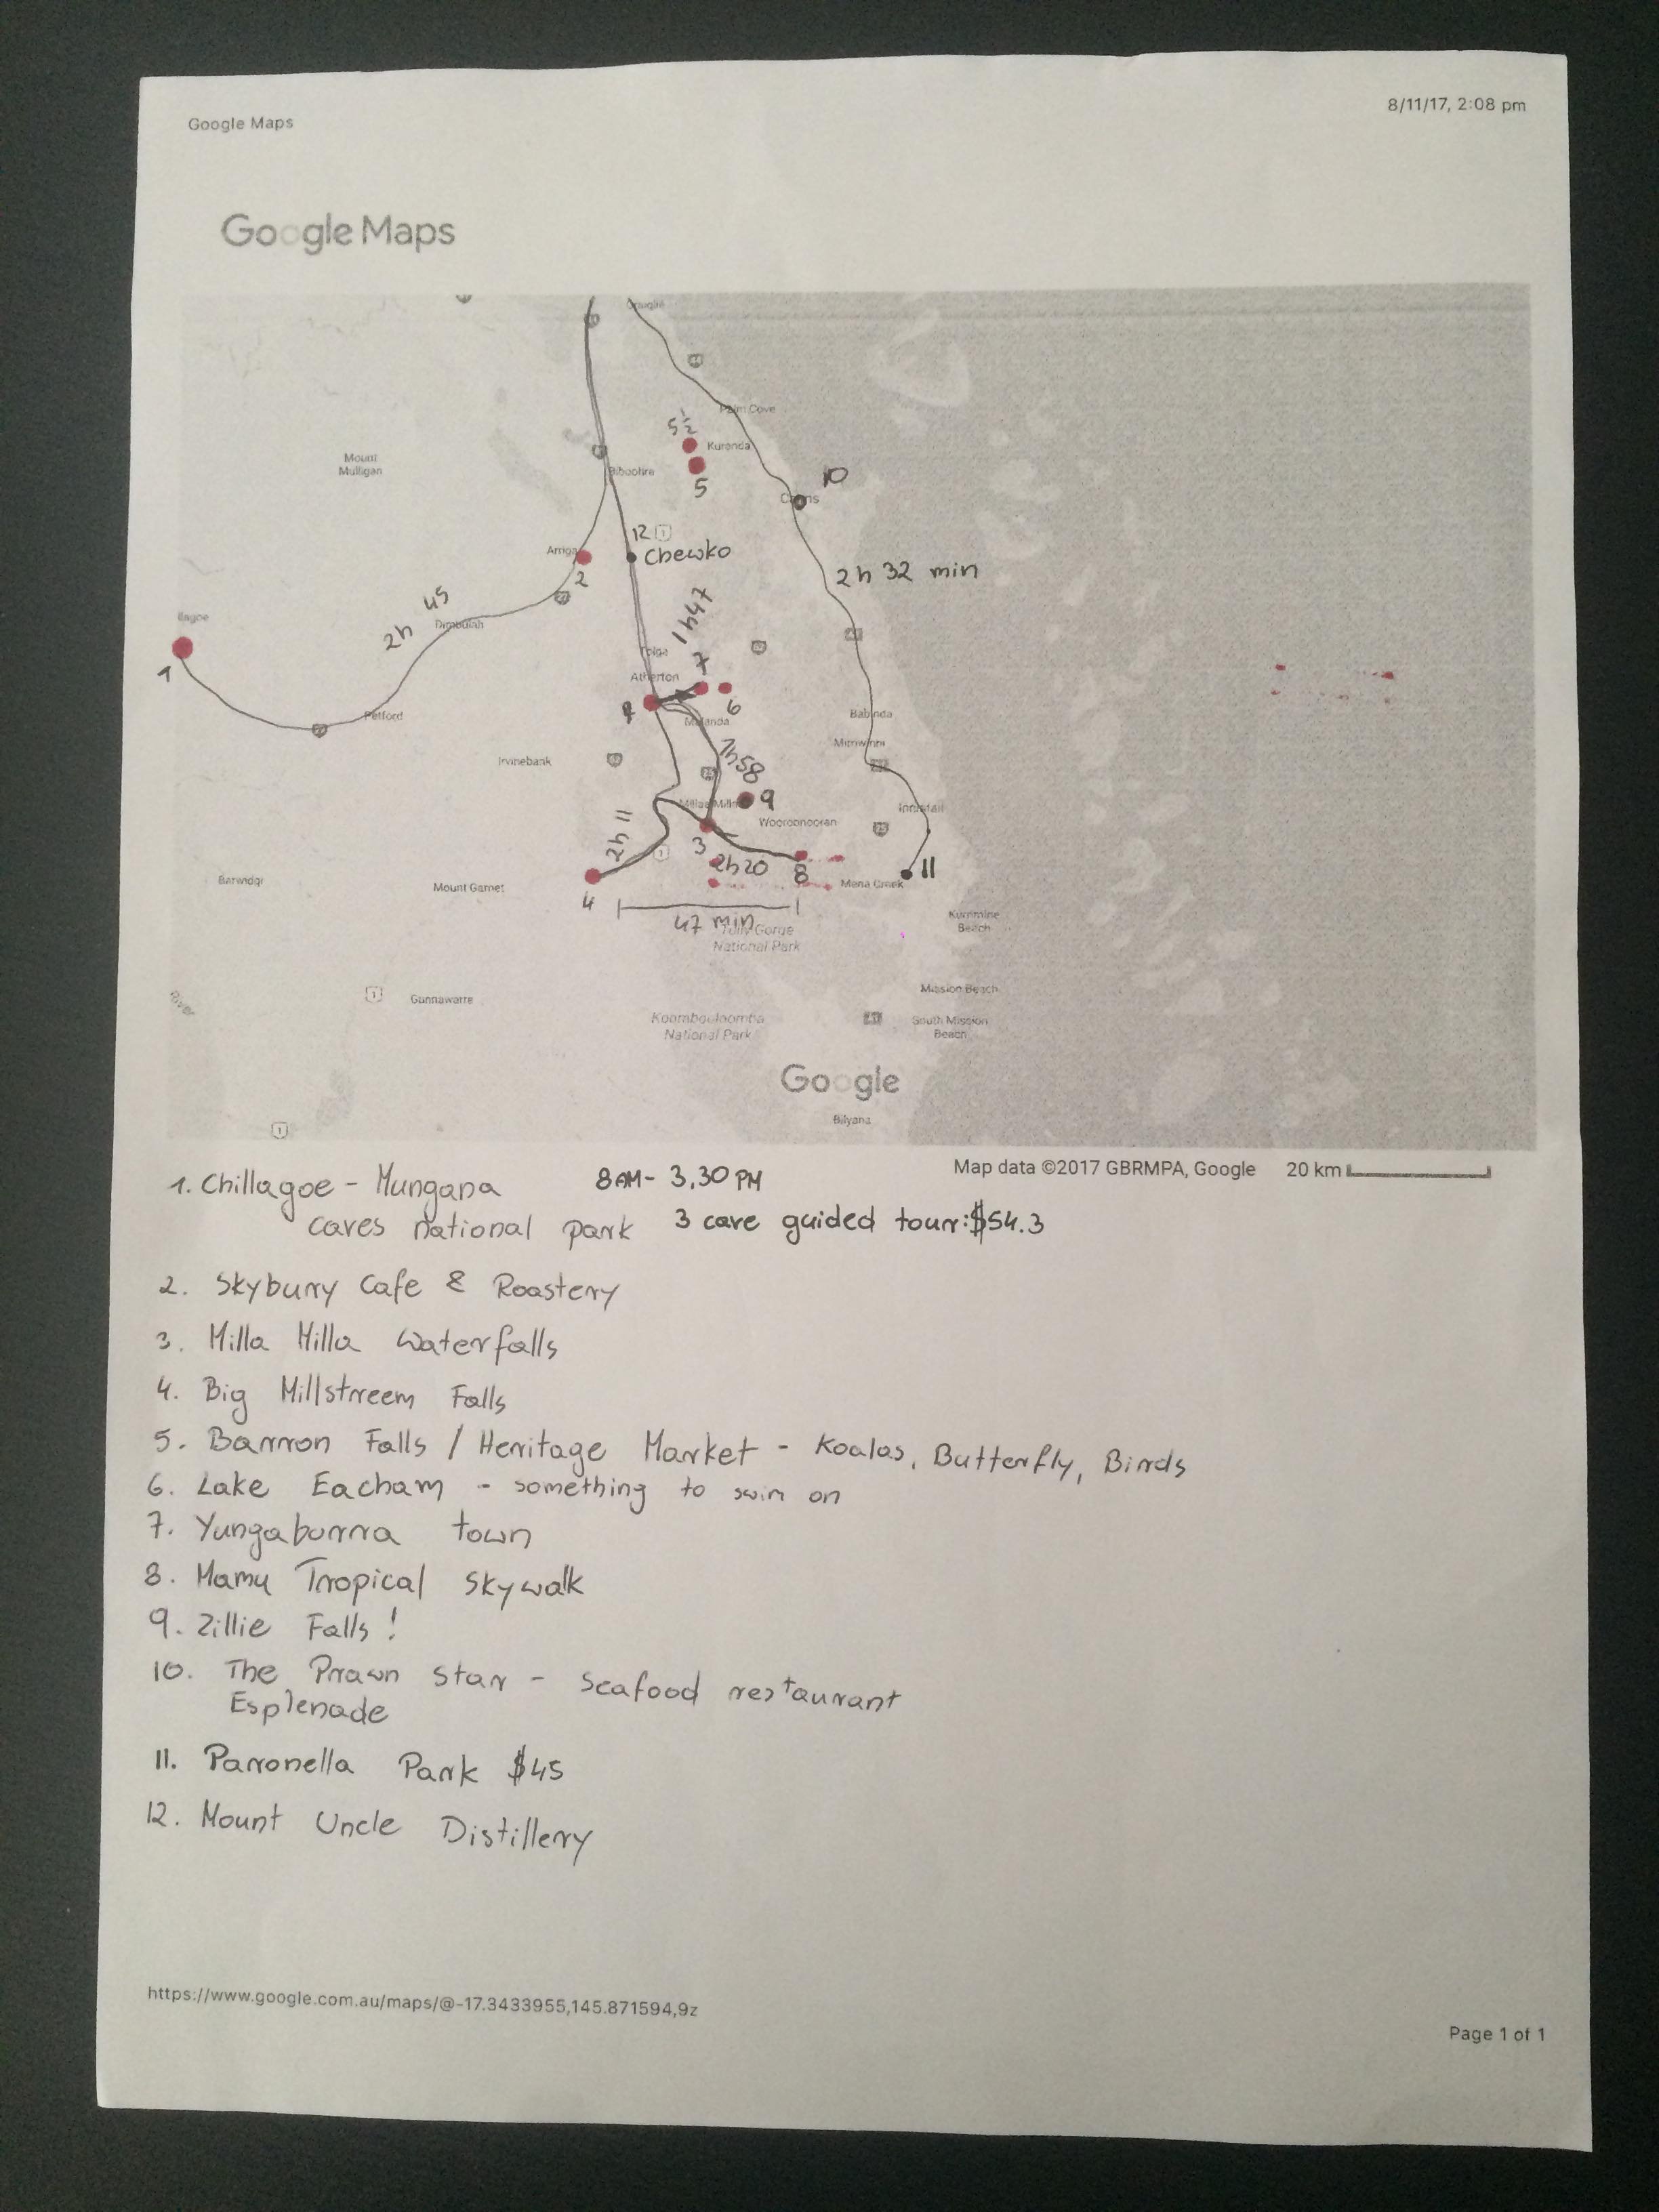 Google Maps
8/11/17, 2:08 pm
Google Maps
Palm Cove
5 1/2
Kuranda
Mount
Mulligan
Biboohra
5
10
Cairns
12 1
Arriga
Chewko
2
2h 32 min
2h 45
Dimbulah
1h47
llagoe
1
Tolga
7
Atherton
6
Petford
Malanda
Babinda
Mirriwinni
Irvinebank
1h58
9
Millaa Millaa
Innisfail
Wooroonooran
25
2h 11
1
3
2h20
8
11
Barwidgi
Mount Garnet
Mena Creek
4
47 min
Tully Gorge
National Park
Kurrimine
Beach
1
Gunnawarra
Mission Beach
Koombooloomba
National Park
South Mission
Beach
Google
Bilyana
1
Map data ©2017 GBRMPA, Google 20 km
1. Chillagoe - Mungana 8AM - 3,30 PM
caves national park 3 cave guided tour:$54.3
2. Skybury Cafe & Roastery
3. Milla Milla Waterfalls
4. Big Millstreem Falls
5. Barron Falls / Heritage Market - Koalas, Butterfly, Birds
6. Lake Eacham - something to swim on
7. Yungaburra town
8. Mamu Tropical Skywalk
9. Zillie Falls!
10. The Prawn Star - Seafood restaurant
Esplenade
11. Paronella Park $45
12. Mount Uncle Distillery
https://www.google.com.au/maps/@-17.3433955,145.871594,9z
Page 1 of 1